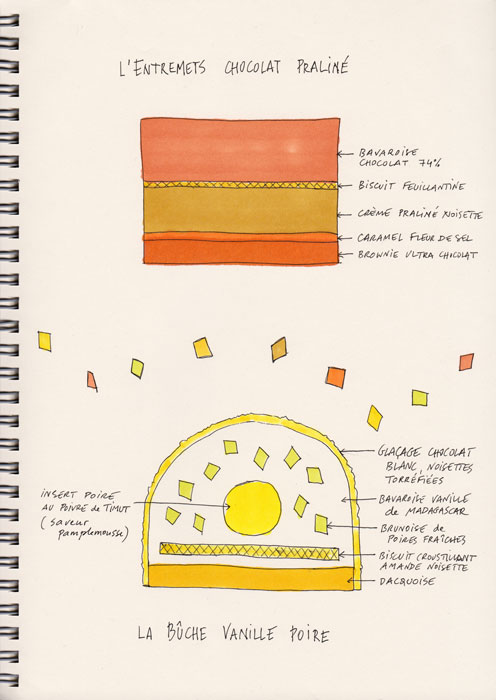 L'ENTREMETS CHOCOLAT PRALINÉ
BAVAROISE
CHOCOLAT 74%
BISCUIT FEUILLANTINE
CRÈME PRALINÉ NOISETTE
CARAMEL FLEUR DE SEL
BROWNIE ULTRA CHOCOLAT
GLAÇAGE CHOCOLAT
BLANC, NOISETTES
TORRÉFIÉES
INSERT POIRE
AU POIVRE DE TIMUT
(saveur
pamplemousse)
BAVAROISE VANILLE
de MADAGASCAR
BRUNOISE de
POIRES FRAÎCHES
BISCUIT CROUSTILLANT
AMANDE NOISETTE
DACQUOISE
LA BÛCHE VANILLE POIRE